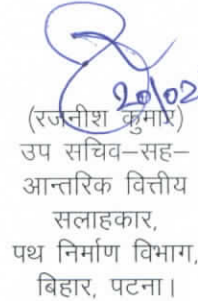 20/02
(रजनीश कुमार)
उप सचिव–सह–
आन्तरिक वित्तीय
सलाहकार,
पथ निर्माण विभाग,
बिहार, पटना।